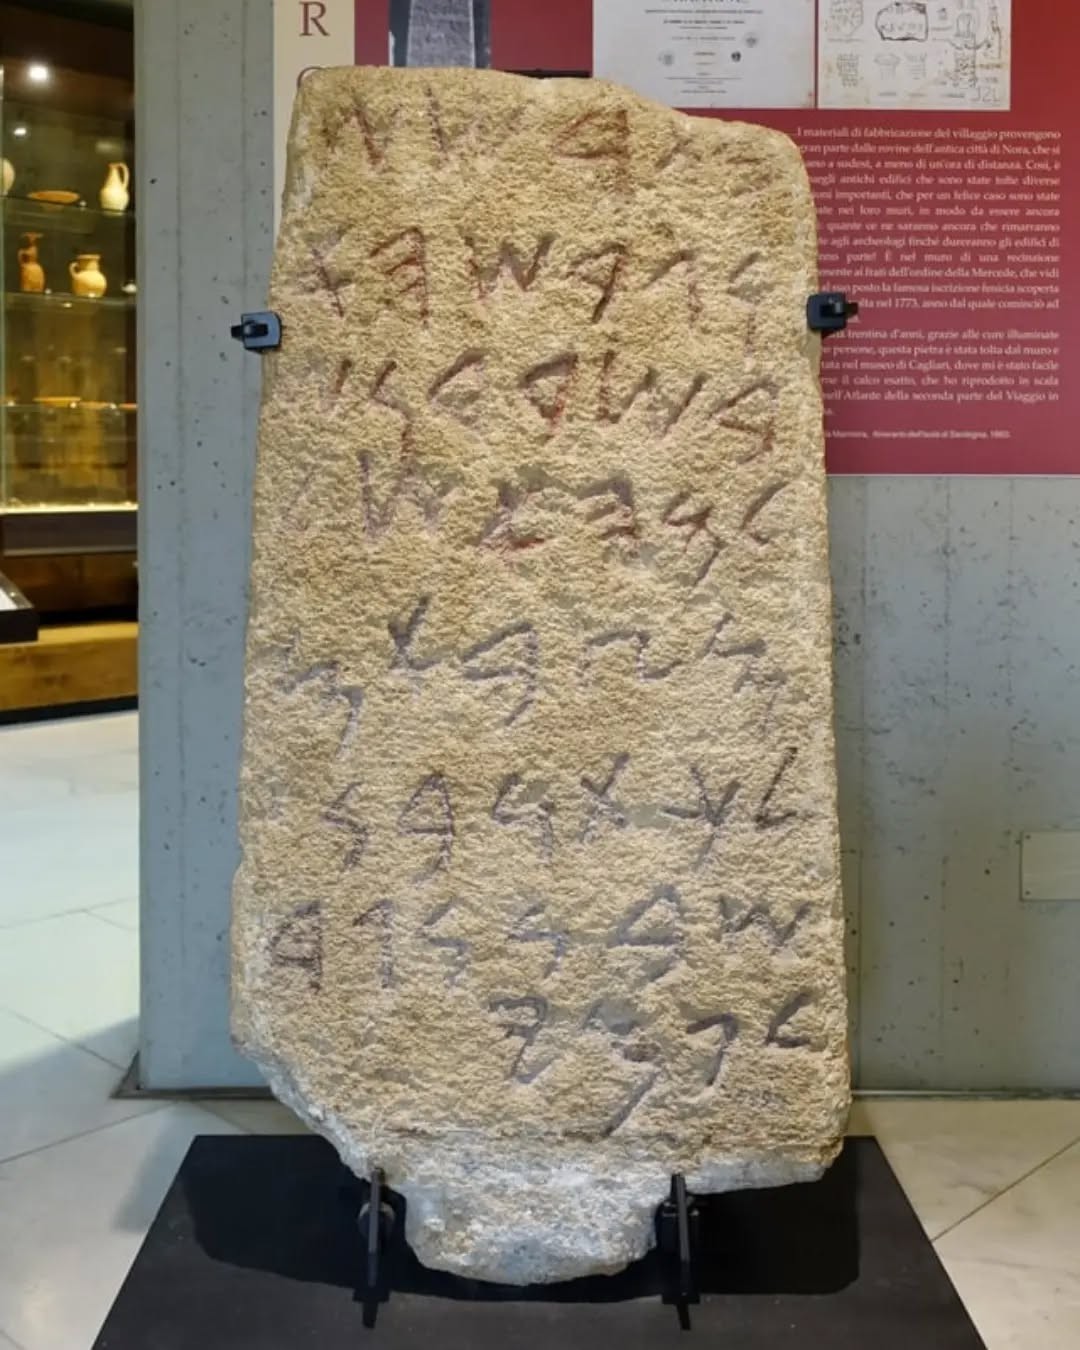 𐤁𐤕𐤓𐤔𐤔
𐤅𐤂𐤓𐤔𐤄𐤀
𐤁𐤔𐤓𐤃𐤍𐤔
𐤋𐤌𐤄𐤀𐤔𐤋
𐤌𐤑𐤁𐤀𐤌
𐤋𐤊𐤕𐤍𐤁𐤍
𐤔𐤁𐤍𐤍𐤂𐤃
𐤋𐤐𐤌𐤉
R
..I materiali di fabbricazione del villaggio provengono
gran parte dalle rovine dell'antica città di Nora, che si
a sudest, a meno di un'ora di distanza. Così, è
negli antichi edifici che sono state tolte diverse
importanti, che per un felice caso sono state
nei loro muri, in modo da essere ancora
quante ce ne saranno ancora che rimarranno
agli archeologi finché dureranno gli edifici di
parte! È nel muro di una recinzione
ai frati dell'ordine della Mercede, che vidi
al suo posto la famosa iscrizione fenicia scoperta
nel 1773, anno dal quale cominciò ad
trentina d'anni, grazie alle cure illuminate
persone, questa pietra è stata tolta dal muro e
nel museo di Cagliari, dove mi è stato facile
il calco esatto, che ho riprodotto in scala
nell'Atlante della seconda parte del Viaggio in
Marmora, Itinerario dell'isola di Sardegna, 1860.